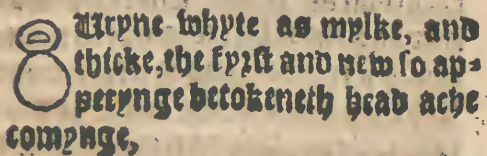 8 Uryne whyte as mylke, and
thicke, the fyrst and new so ap⸗
perynge betokeneth head ache
comynge,